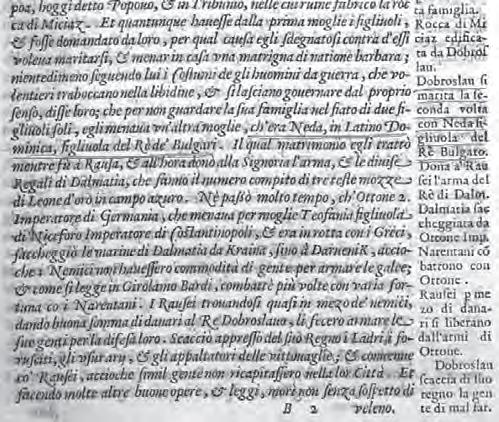 poa, hoggi detto Popouo, & in Tribunio, nelle cui ruine fabricò la roc
ca di Miciaz. Et quantunque hauesse dalla prima moglie i figliuoli,
& fosse domandato da loro, per qual causa egli sdegnatosi contra d'essi
voleua maritarsi, & menar in casa vna matrigna di natione barbara;
nientedimeno seguendo lui i costumi de gli huomini da guerra, che vo-
lentieri traboccano nella libidine, & si lasciano gouernare dal proprio
senso, disse loro; che per non guardare la sua famiglia nel fiato di due fi-
gliuoli soli, egli menaua vn'altra moglie, ch'era Neda, in Latino Do-
minica, figliuola del Rè de' Bulgari. Il qual matrimonio egli trattò
mentre fù à Rausa, & all'hora donò alla Signoria l'arma, & le diuise
Regali di Dalmatia, che fanno il numero compito di tre teste mozze
di Leone d'oro in campo azuro. Nè passò molto tempo, ch'Ottone 2.
Imperatore di Germania, che menaua per moglie Teofania figliuola
di Niceforo Imperatore di Costantinopoli, & era in rotta con i Greci,
saccheggiò le marine di Dalmatia da Kraina, sino à Darnenik, accio-
che i Nemici non hauessero commodità di gente per armare le galee;
& come si legge in Girolamo Bardi, combattè più volte con varia for-
tuna co i Narentani. I Rausei trouandosi quasi in mezo de' nemici,
dando buona somma di danari al Rè Dobroslauo, li fecero armare le
sue genti per la difesa loro. Scacciò appresso del suo Regno i Ladri, i fo-
rusciti, gli vsurary, & gli appaltatori delle vittouaglie; & conuenne
co' Rausei, accioche simil gente non ricapitassero nella lor Città. Et
facendo molte altre buone opere, & leggi, morì non senza sospetto di
B 2 veleno.
ta famiglia.
Rocca di Mi
ciaz edifica-
ta da Dobrof
lau.
Dobroslau si
marita la se-
conda volta
con Neda fi-
gliuola del
Rè Bulgaro.
Dona à Rau
sei l'arma del
Rè di Dalm.
Dalmatia sac
cheggiata da
Ottone Imp.
Narentani cō
battono con
Ottone.
Rausei p me
zo di dana-
ri si liberano
dall'armi di
Ottone.
Dobroslau
scaccia di suo
regno la gen
te di mal far.